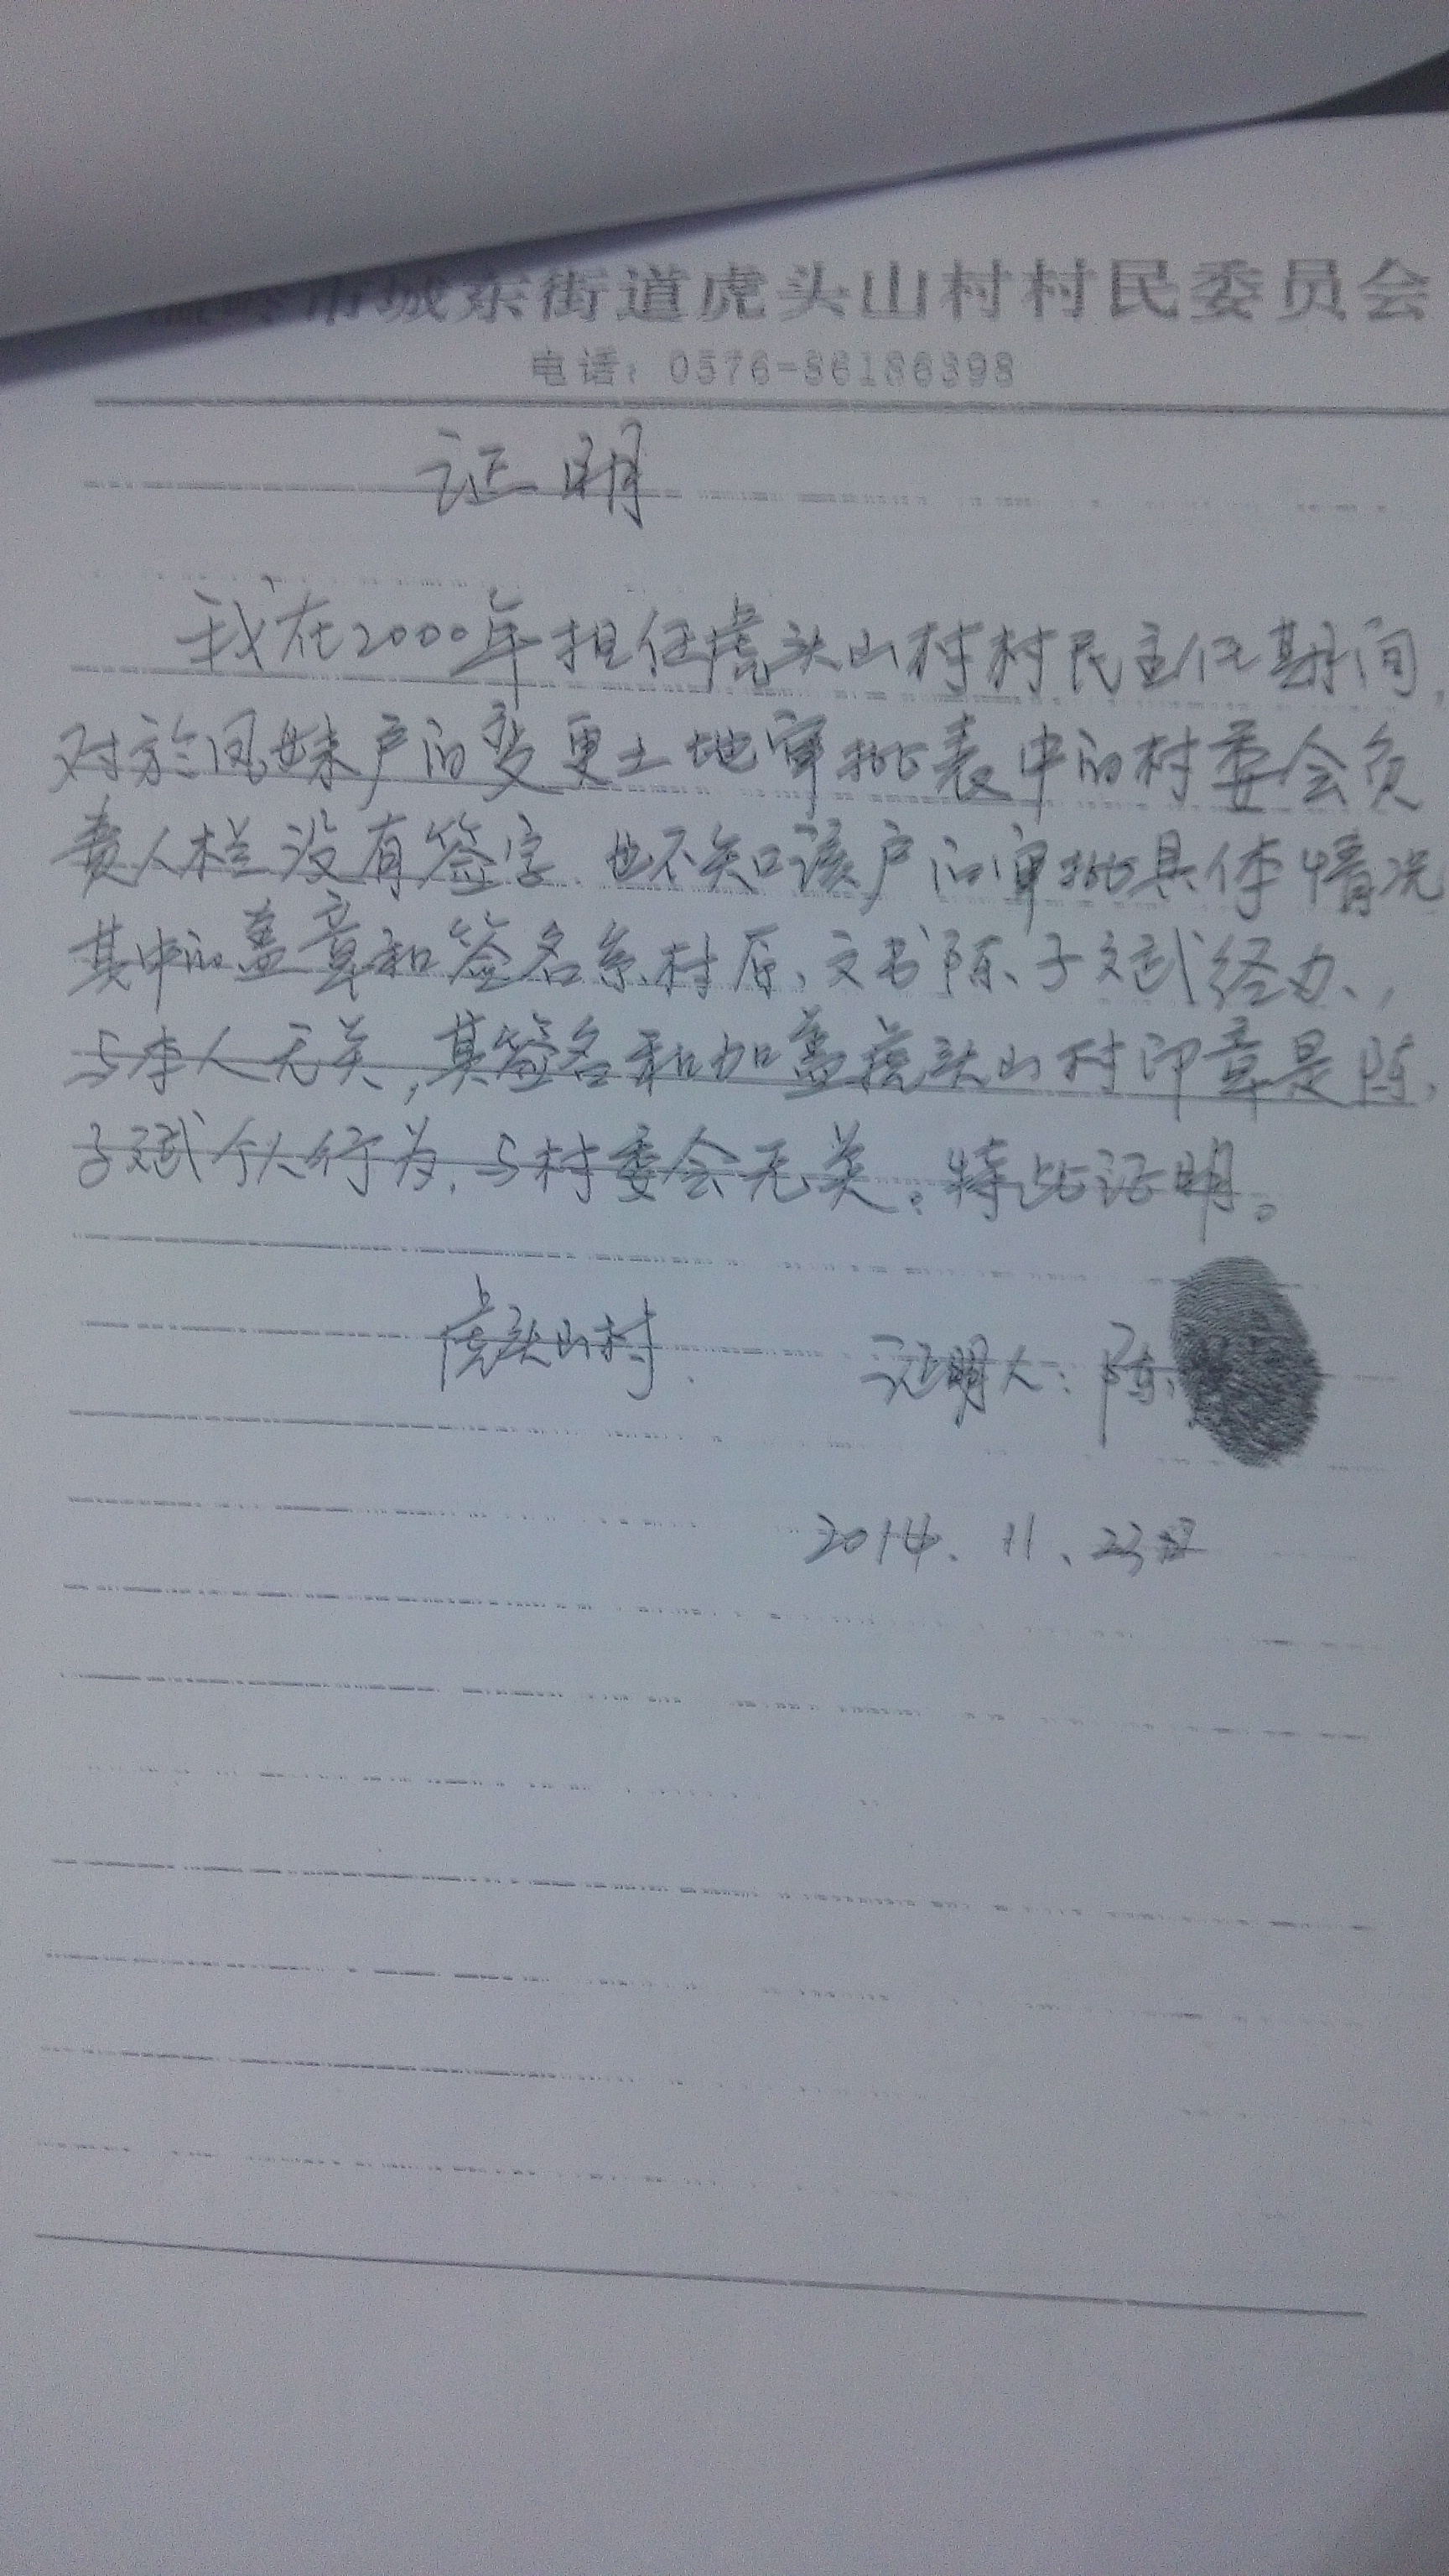 市城东街道虎头山村村民委员会
电话：0576-86186398
证明
我在2000年担任虎头山村村民主任期间，
对於凤妹户的变更土地审批表中的村委会负
责人栏没有签字、也不知该户的审批具体情况
其中的盖章和签名系村原、文书陈子斌经办、，
与本人无关，其签名和加盖虎头山村印章是陈
子斌个人行为、与村委会无关。特此证明。
虎头山村
证明人：陈
2014、11、23日